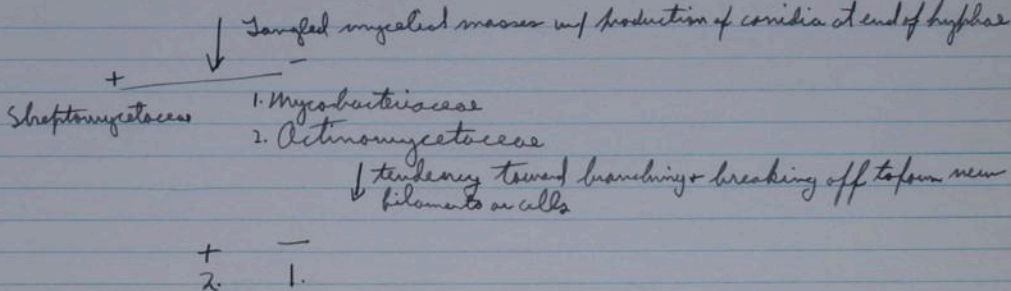 ↓ Tangled mycelial masses w/ production of conidia at end of hyphae
+ -
Streptomycetaceae 1. Mycobacteriaceae
2. Actinomycetaceae
↓ tendency toward branching & breaking off to form new
filaments or cells
+ -
2. 1.